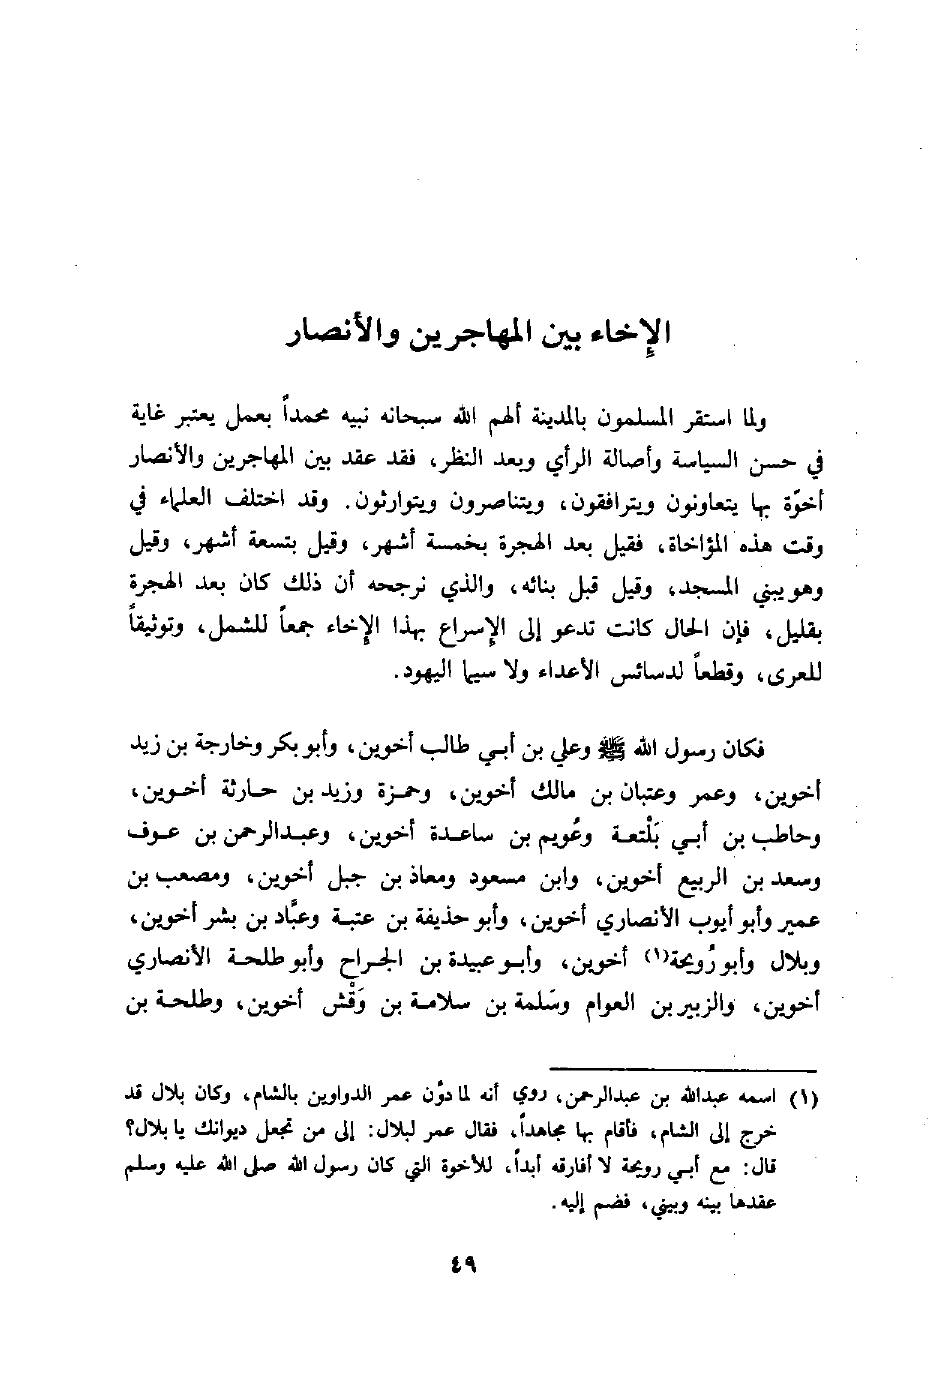 الإخاء بين المهاجرين والأنصار
ولما استقر المسلمون بالمدينة ألهم الله سبحانه نبيه محمداً بعمل يعتبر غاية
في حسن السياسة وأصالة الرأي وبعد النظر، فقد عقد بين المهاجرين والأنصار
أخوّة بها يتعاونون ويترافقون، ويتناصرون ويتوارثون. وقد اختلف العلماء في
وقت هذه المؤاخاة، فقيل بعد الهجرة بخمسة أشهر، وقيل بتسعة أشهر، وقيل
وهو يبني المسجد، وقيل قبل بنائه، والذي نرجحه أن ذلك كان بعد الهجرة
بقليل، فإن الحال كانت تدعو إلى الإسراع بهذا الإخاء جمعاً للشمل، وتوثيقاً
للعرى، وقطعاً لدسائس الأعداء ولا سيما اليهود.
فكان رسول الله ﷺ وعلي بن أبي طالب أخوين، وأبو بكر وخارجة بن زيد
أخوين، وعمر وعتبان بن مالك أخوين، وحمزة وزيد بن حارثة أخوين،
وحاطب بن أبي بَلْتعة وعُويم بن ساعدة أخوين، وعبدالرحمن بن عوف
وسعد بن الربيع أخوين، وابن مسعود ومعاذ بن جبل أخوين، ومصعب بن
عمير وأبو أيوب الأنصاري أخوين، وأبو حذيفة بن عتبة وعبَّاد بن بشر أخوين،
وبلال وأبو رُويحة(١) أخوين، وأبو عبيدة بن الجراح وأبو طلحة الأنصاري
أخوين، والزبير بن العوام وسَلمة بن سلامة بن وَقْش أخوين، وطلحة بن
(١) اسمه عبدالله بن عبدالرحمن، روي أنه لما دوَّن عمر الدواوين بالشام، وكان بلال قد
خرج إلى الشام، فأقام بها مجاهداً، فقال عمر لبلال: إلى من تجعل ديوانك يا بلال؟
قال: مع أبي رويحة لا أفارقه أبداً، للأخوة التي كان رسول الله صلى الله عليه وسلم
عقدها بينه وبيني، فضم إليه.
٤٩